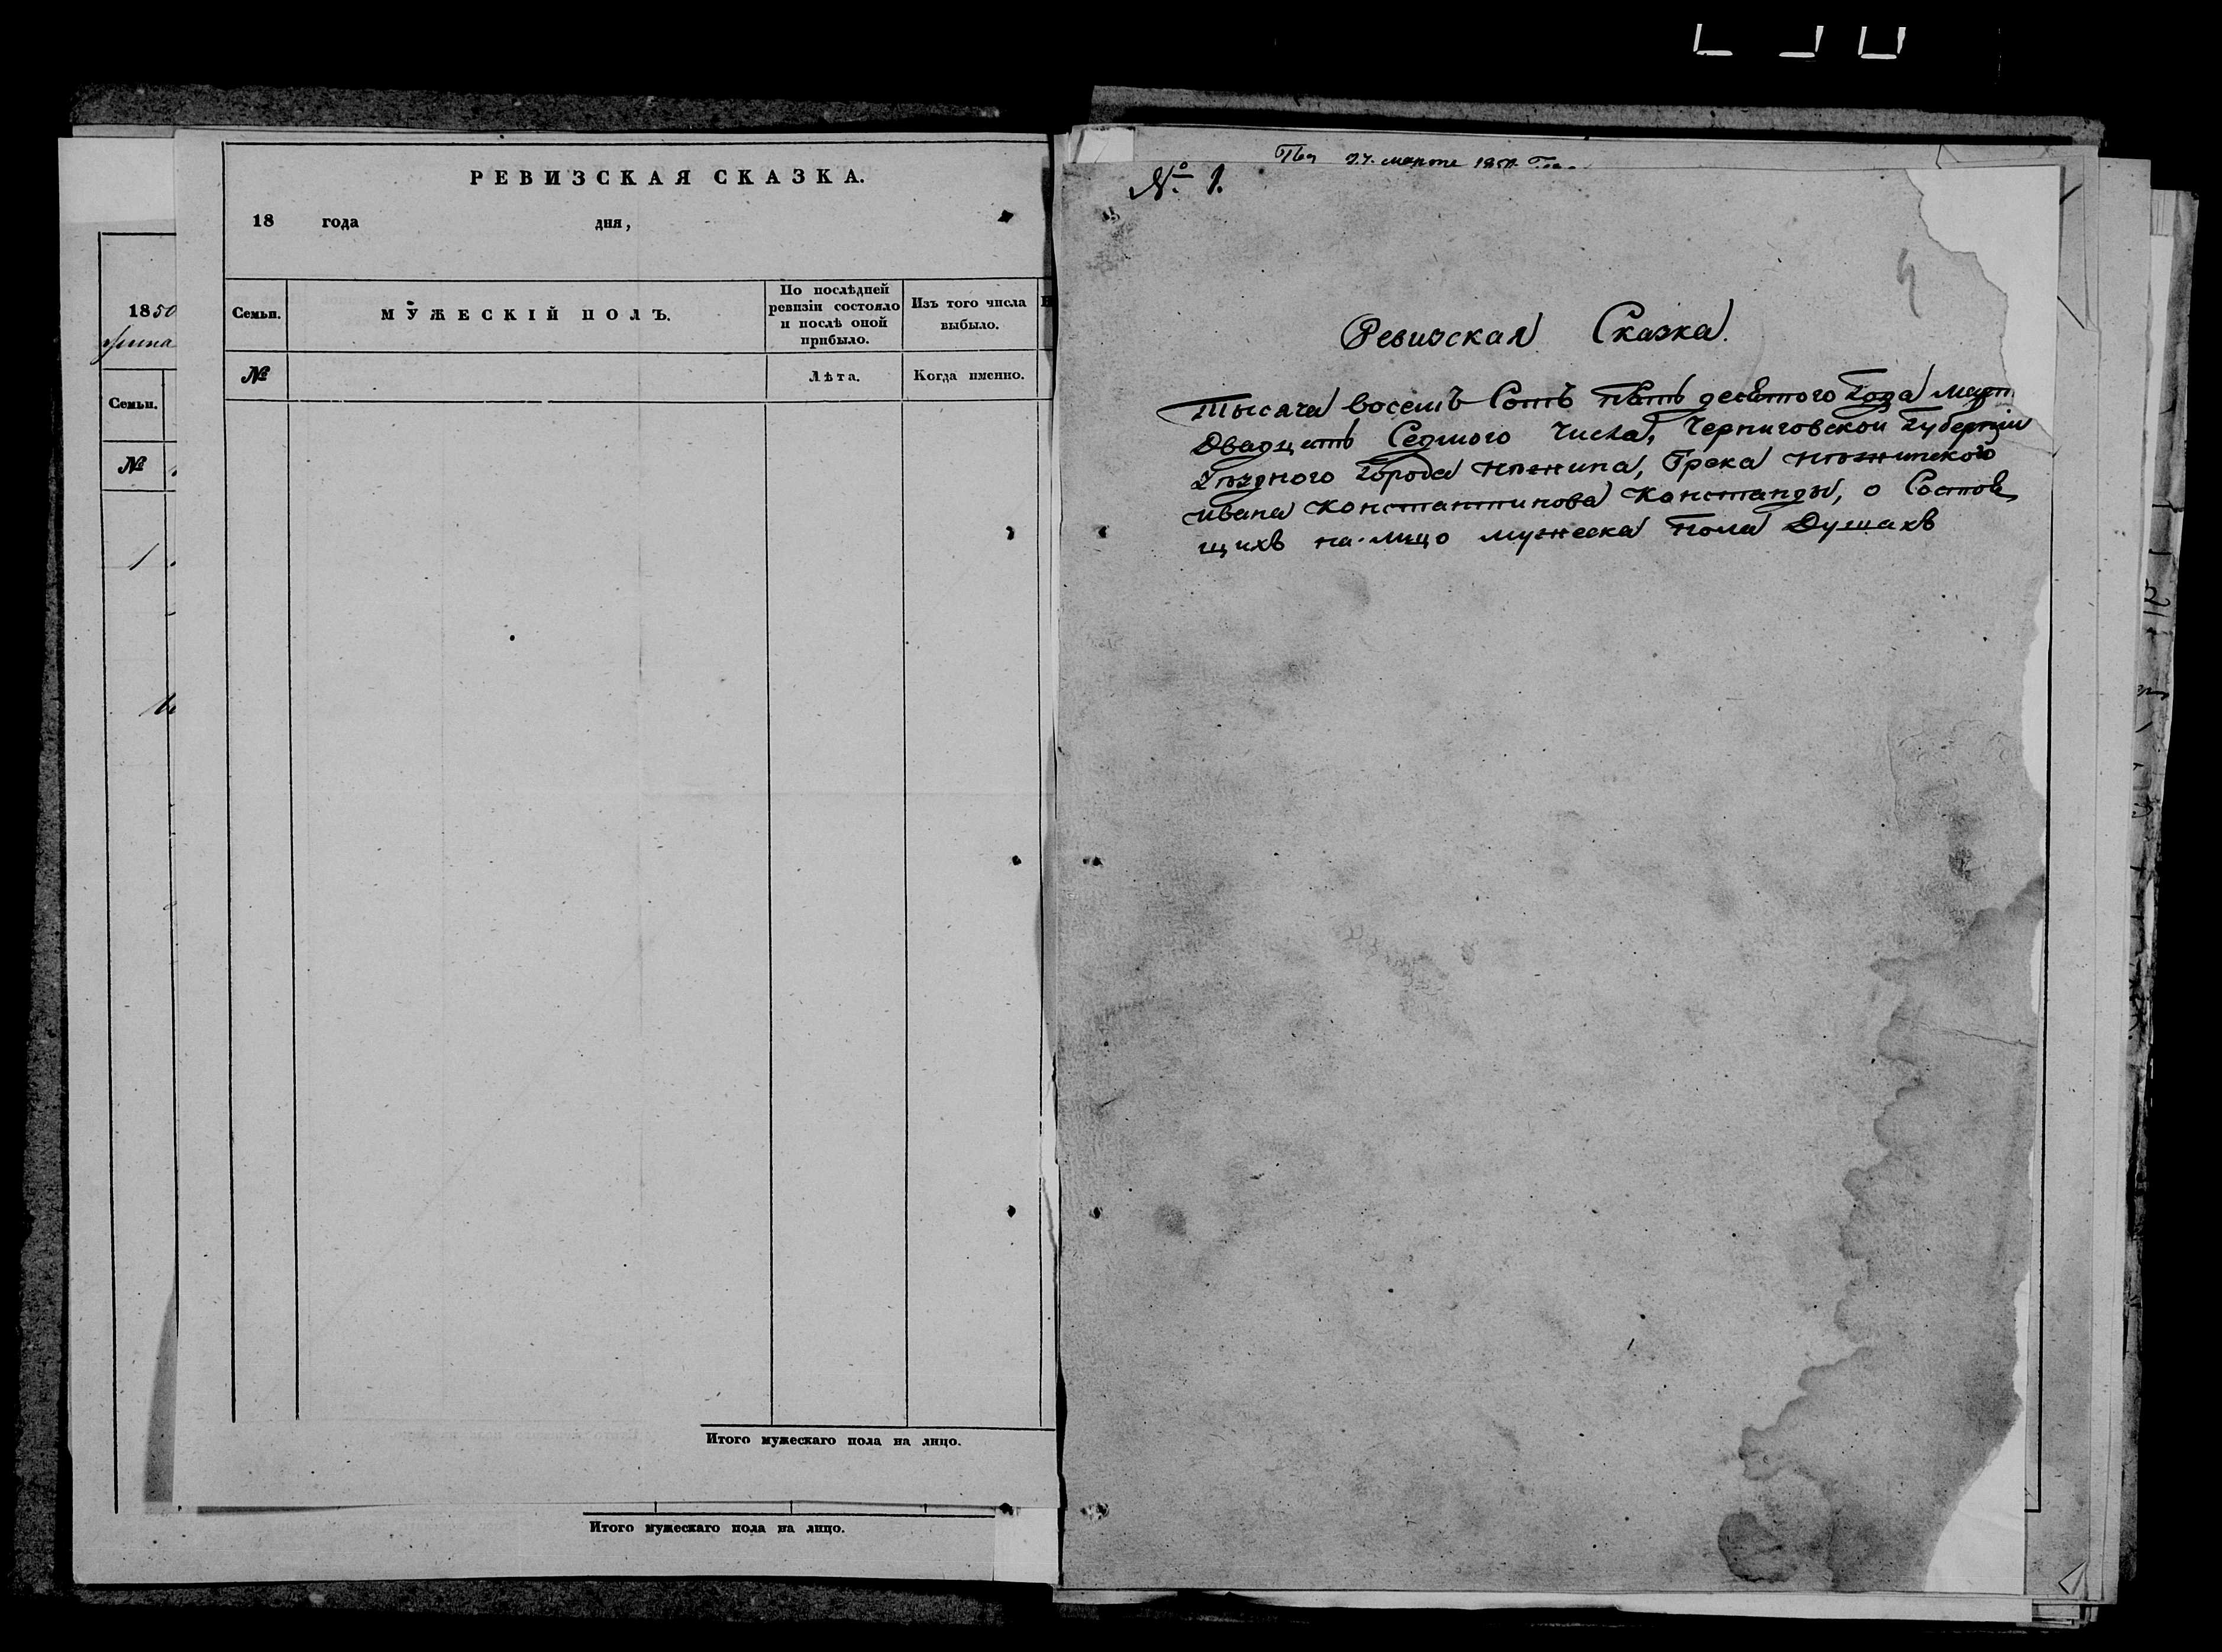 РЕВИЗСКАЯ СКАЗКА.
18 года дня,
Семьи. МУЖЕСКІЙ ПОЛЪ. По послѣдней ревизіи состояло и послѣ оной прибыло. Изъ того числа выбыло.
№ Лѣта. Когда именно.
Итого мужескаго пола на лицо.
1850
Семьи.
№
1
Итого мужескаго пола на лицо.
27. марта 1850.
№ 1.
4
Ревизская Сказка.
Тысяча восемъ Сотъ пять десятого Года март
Двадцать Седмого Числа, Черниговской Губерніи
Уѣздного Города Нѣжина, Грека Нѣжинского
Ивана Константинова Констанды, о Состоя
щихъ на-лицо мужеска пола Душахъ